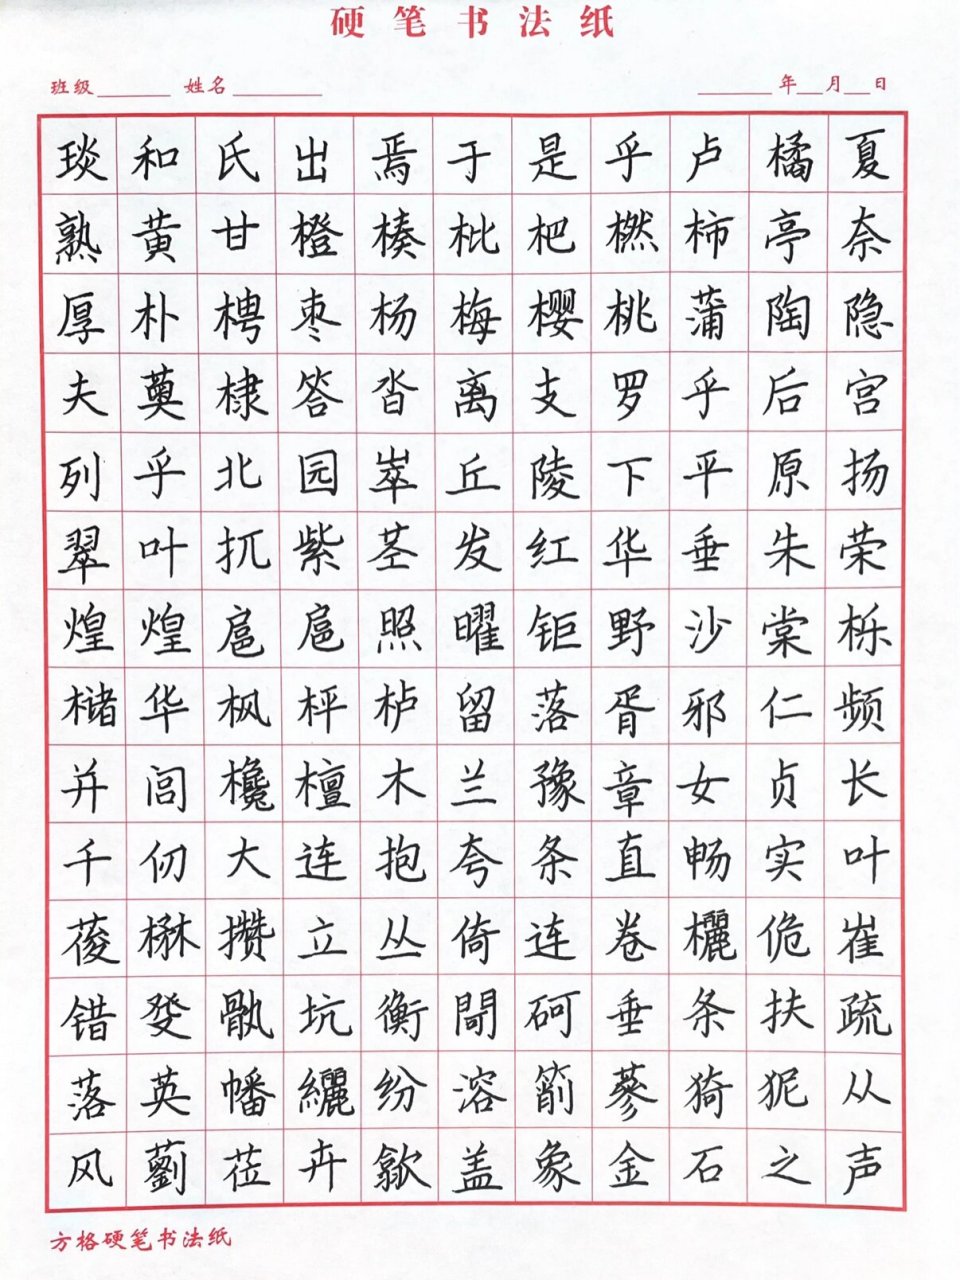 硬笔书法纸
班级 姓名 年 月 日
琰和氏出焉于是乎卢橘夏
熟黄甘橙楱枇杷橪柿亭奈
厚朴梬枣杨梅樱桃蒲陶隐
夫薁棣答沓离支罗乎后宫
列乎北园崒丘陵下平原扬
翠叶扤紫茎发红华垂朱荣
煌煌扈扈照曜钜野沙棠栎
槠华枫枰栌留落胥邪仁频
并闾欃檀木兰豫章女贞长
千仞大连抱夸条直畅实叶
葰楙攒立丛倚连卷欐佹崔
错癹骫坑衡閜砢垂条扶疏
落英幡纚纷溶箾蔘猗狔从
风藰莅卉歙盖象金石之声
方格硬笔书法纸